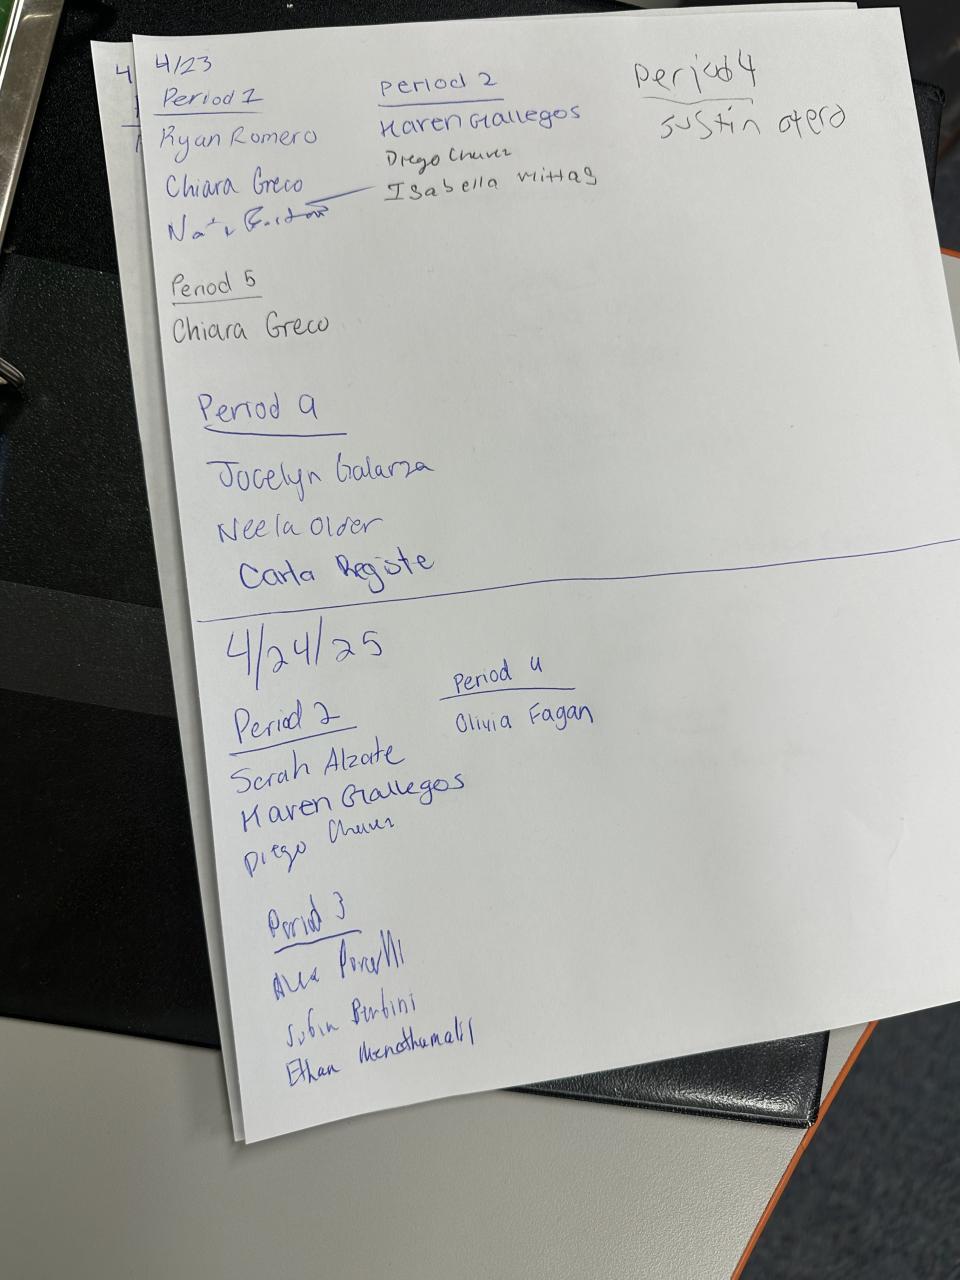 4/23
Period 1
Ryan Romero
Chiara Greco
Period 2
Karen Gallegos
Diego Chavez
Isabella
Period 4
Justin otero
Period 5
Chiara Greco
Period 9
Jocelyn Galarza
Neela Older
Carla Registe
4/24/25
Period 2
Sarah Alzate
Karen Gallegos
Diego Chavez
Period 4
Olivia Fagan
Period 3
Alex
Ethan
4